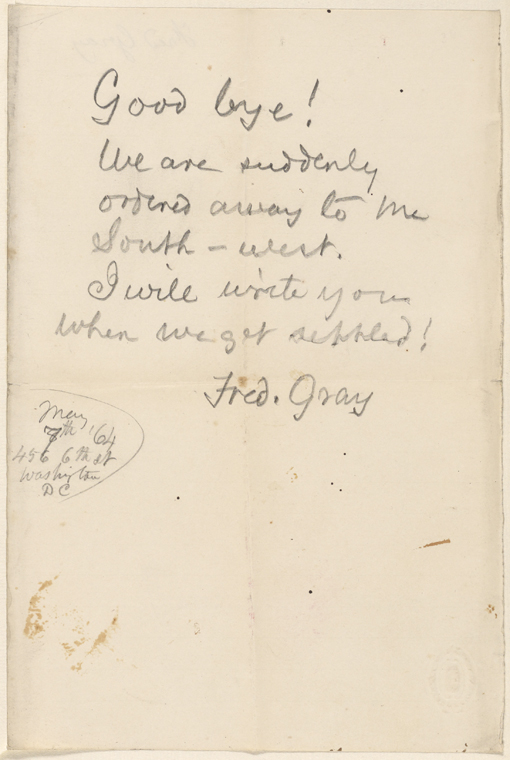 Good bye!
We are suddenly
ordered away to the
South-west.
I will write you
when we get settled!
Fred. Gray
May
7th '64
456 6th st
Washington
DC